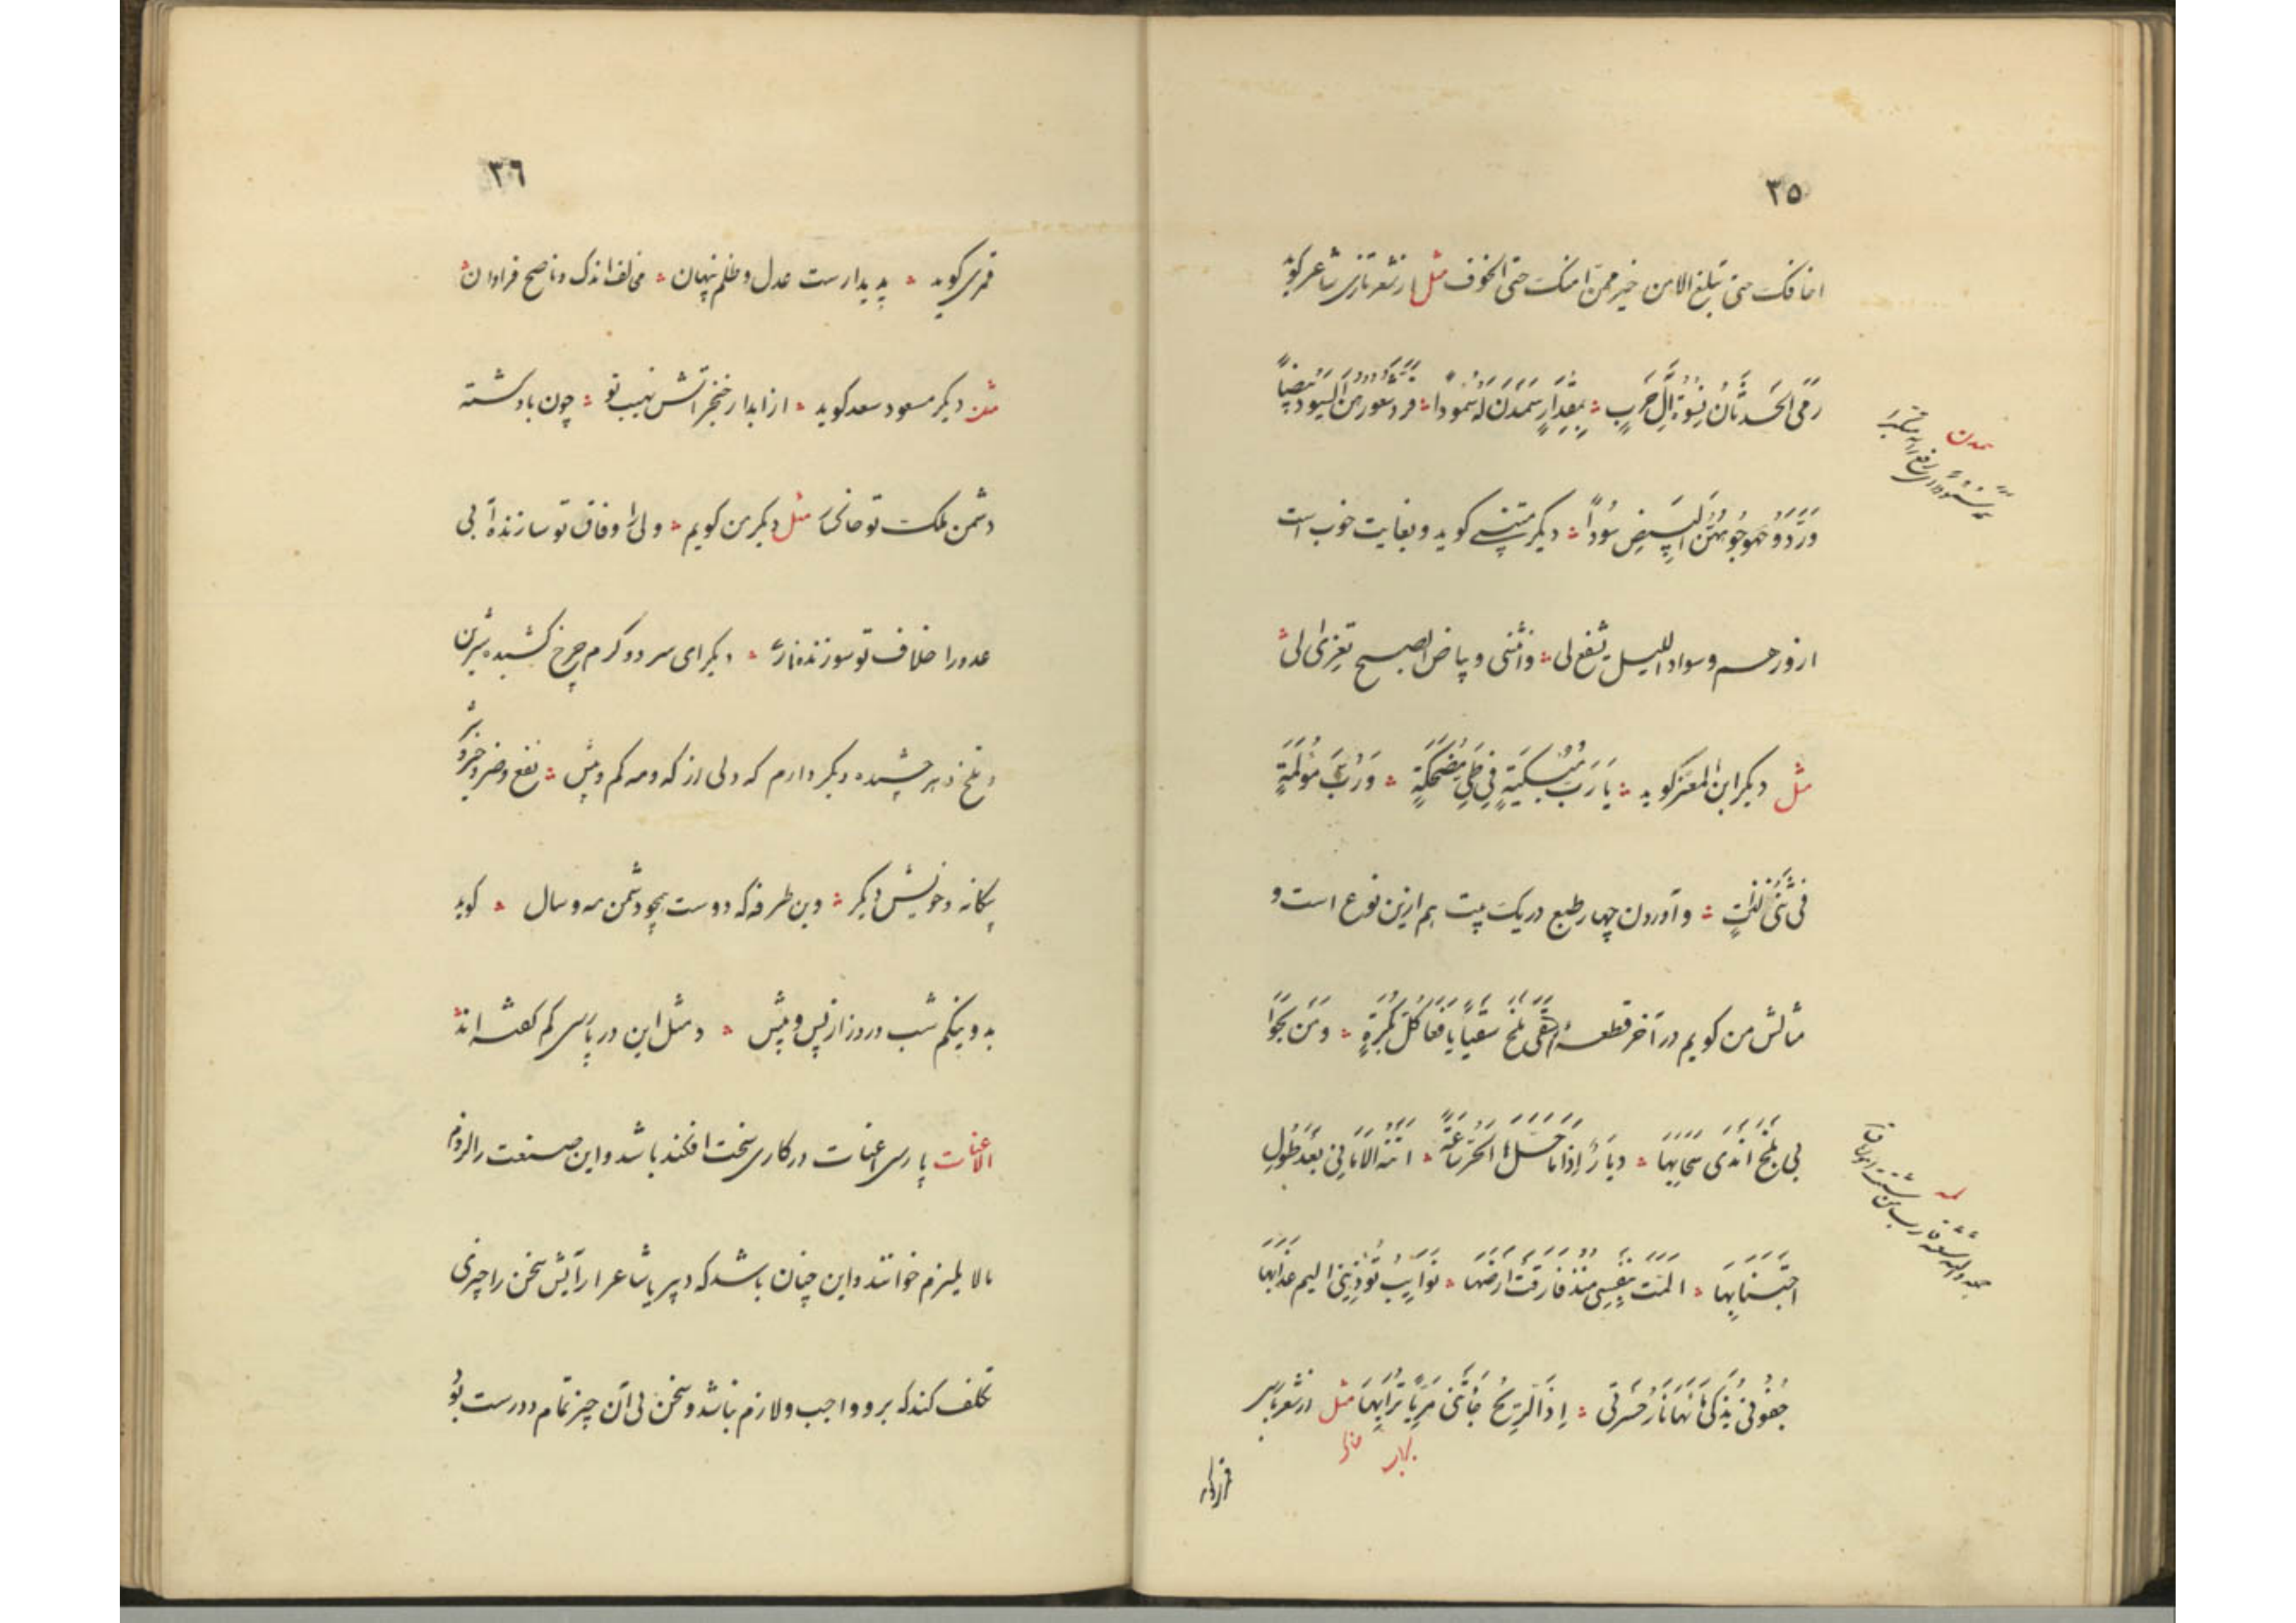 ٣٥
اخافک حتی تبلغ الامن خیر ممن امنک حتی الخوف مثل از شعر تازی شاعر کوید
رَمَی الحَدَثانُ نِسوَةَ آلِ حَربٍ بِمِقدارٍ سَمَدنَ لَهُ سُمودا فَرَدَّ شُعورَهُنَّ السُّودَ بیضاً
وَرَدَّ وُجُوهَهُنَّ البِیضَ سُوداً دیکر متنبی کوید و بغایت خوب است
ازورهم وسواد اللیل یشفع لی وانثنی وبیاض الصبح یغری بی
مثل دیکر ابن المعتز کوید یا رَبَّ مُبکیَةٍ فی طَیِّ مُضحِکَةٍ وَرُبَّ مُؤلِمَةٍ
فی ثِنیِ لَذّاتٍ و آوردن چهار طبع در یک بیت هم ازین نوع است و
مثالش من کویم در آخر قطعه سقی بلخ سقیا یافعا کل بکرة ومن نحو
بی بلخ اندی سحابها دیار اذا ما حلها الحر ساعة اتته الامانی بعد طول
اجتنابها المت بنفسی منذ فارقت ارضها نوایب تؤذینی الیم عذابها
جفونی یذکی مائها نار حسرتی اذا الریح جائتنی بریا ترابها مثل از شعر پارسی
٣٦
قمری کوید پدیدارست عدل و ظلم پنهان مخالف اندک و ناصح فراوان
مثل دیکر مسعود سعد کوید از ابدار خنجر آتش نهیب تو چون باد کشته
دشمن ملک تو خاکسار مثل دیکر من کویم ولی را وفاق تو سازنده آبی
عدو را خلاف تو سوزنده نار دیکر ای سرد و کرم چرخ کشیده شیرین
و تلخ دهر چشیده دیکر دارم که دلی از که و مه کم و بیش نفع و ضر و خیر و شر
بیکانه و خویش دیکر وین طرفه که دوست همچو دشمن مه و سال کوید
بد و نیکم شب و روز از پس و پیش و مثل این در پارسی کم کفته اند
الاعنات پارسی اعنات در کاری سخت افکندن باشد و این صنعت را لزوم
مالا یلزم خوانند و این چنان باشد که دبیر یا شاعر ارایش سخن را چیزی
تکلف کند که برو واجب و لازم نباشد و سخن بی آن چیز تمام و درست بود